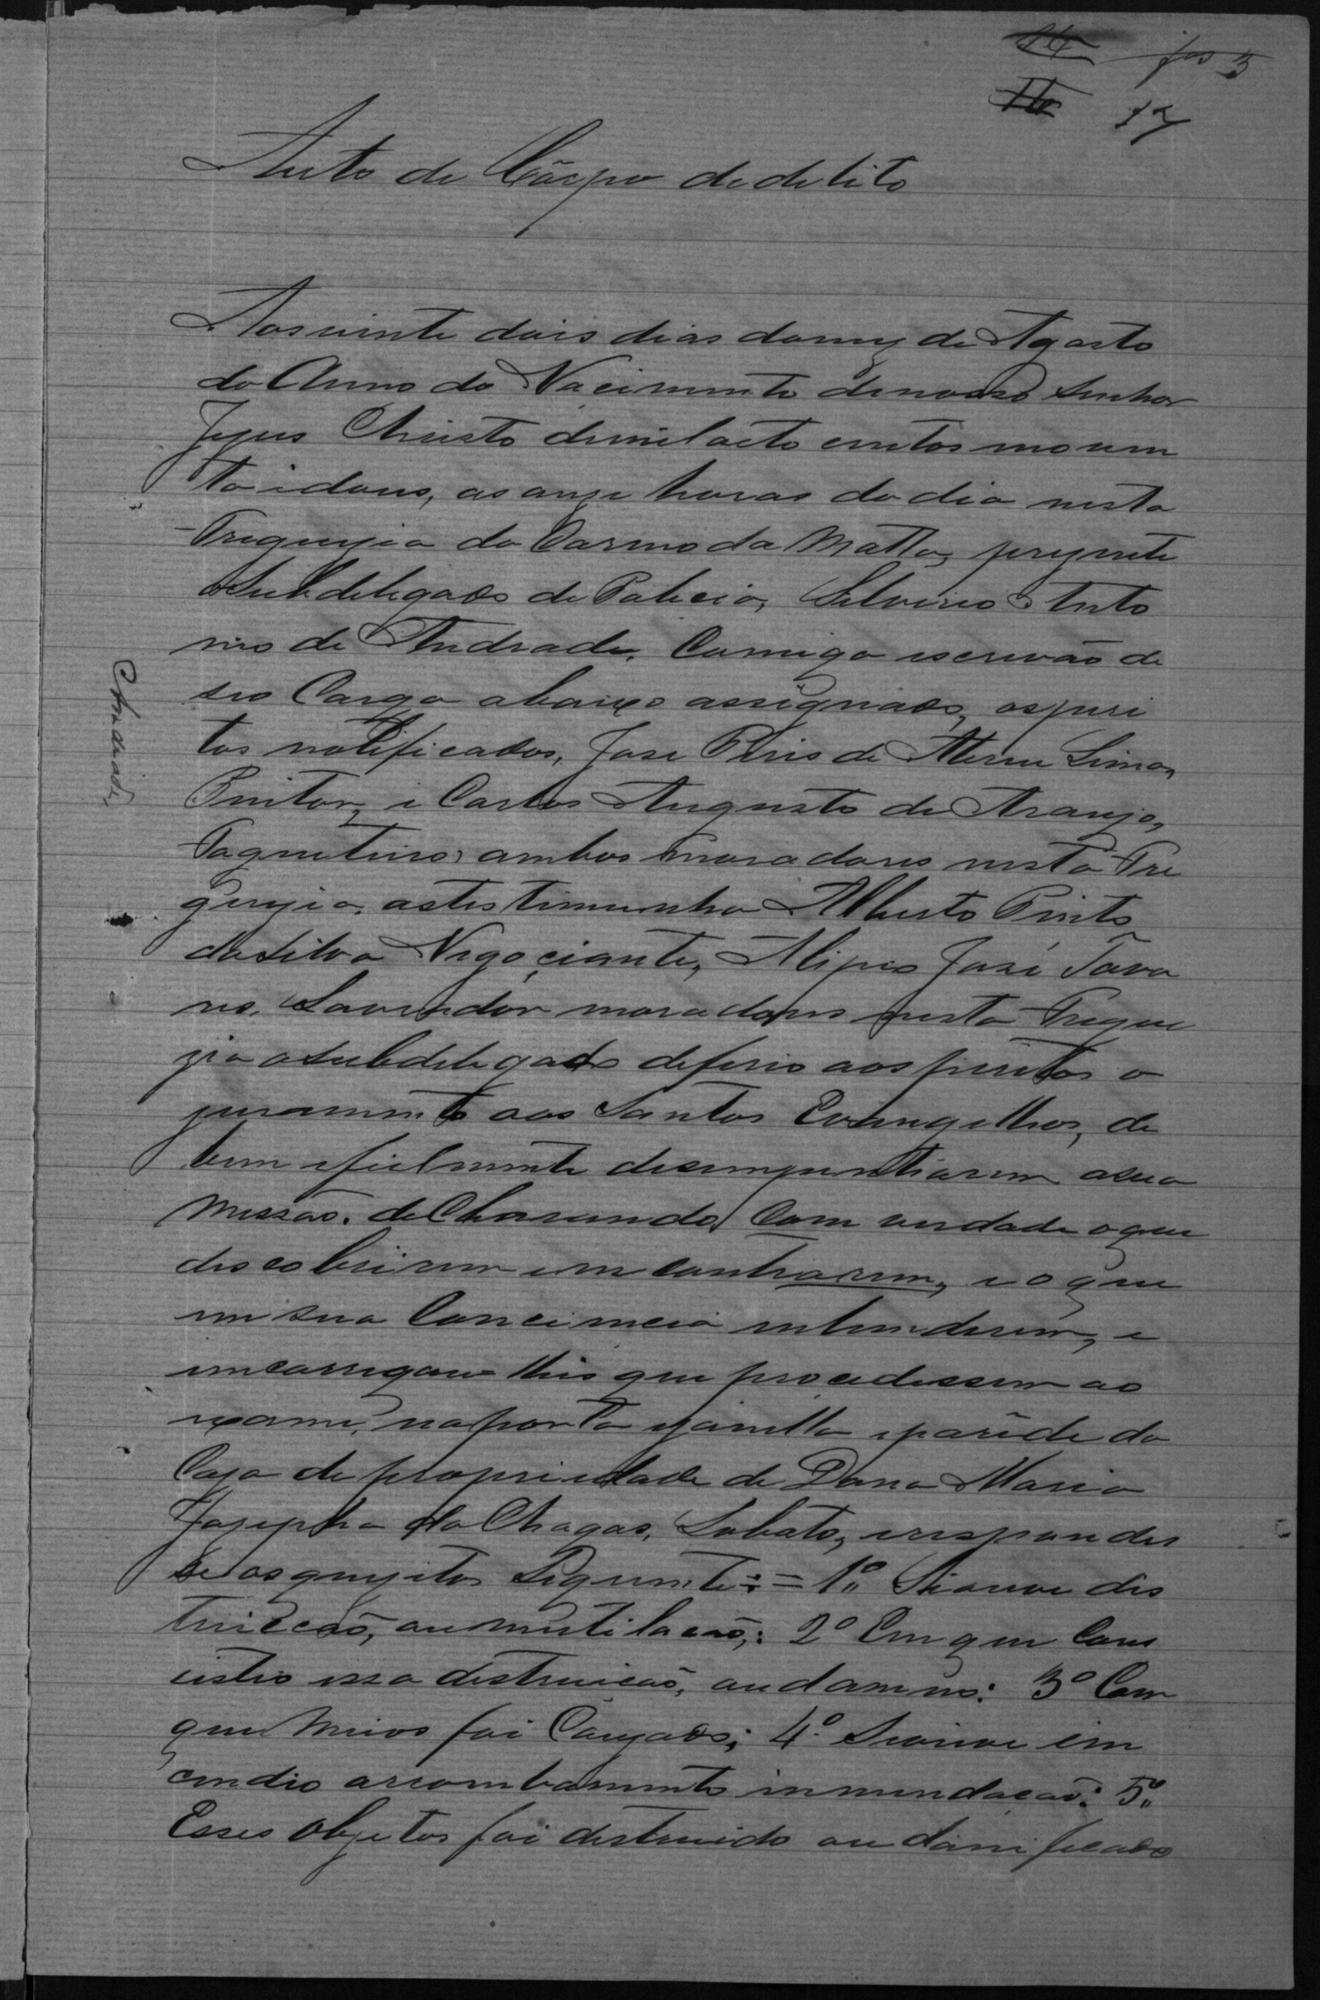 fos 5
17
Auto de Côrpo dedelito
Aos vinte dois dias domez de Agosto
do Anno do Nacimento denosso Senhor
Jezus Christo demil oito centos moven
ta i dous, as onze horas do dia nesta
Freguezia do Carmo da Matta, prezente
oSubdelegado de Policia, Silverio Anto
nio de Andrade, Comigo escrivão de
seo Cargo abaixo assignado, osperi
tos notificados, Jose Pires de Lima,
Pintor, i Carlos Augusto de Araujo,
Fogueteiro, ambos moradores nesta Fre
guezia, astestimunha Alberto Pinto
da Silva Negoçiante, Alipio José Tava
res, Lavrador moradores nesta Fregue
zia oSubdelegado deferio aos peritos o
juramento aos Santos Evangelhos, de
bem efielmente desempenharem asua
Missão, deClarando Com verdade oque
descobrirem emcontrarem, e o que
em sua Conciencia entenderem, e
emcarregou lhis que procedessem ao
exame, naporta ejanella eparêde da
Caza de propriedade de Dona Maria
Jozepha da Chagas, Lobato, erespondes
se osquezitos Siguinte: = 1º Si houve dis
truicão, ou mutilacão,: 2º Em que Cons
cistio essa destruicão, oudamno: 3º Com
que Meios foi Cauzado; 4º Si ouve em
cendio arrombamento inmundacão: 5º
Esses Objetos foi destruido ou danificado
Andrade,